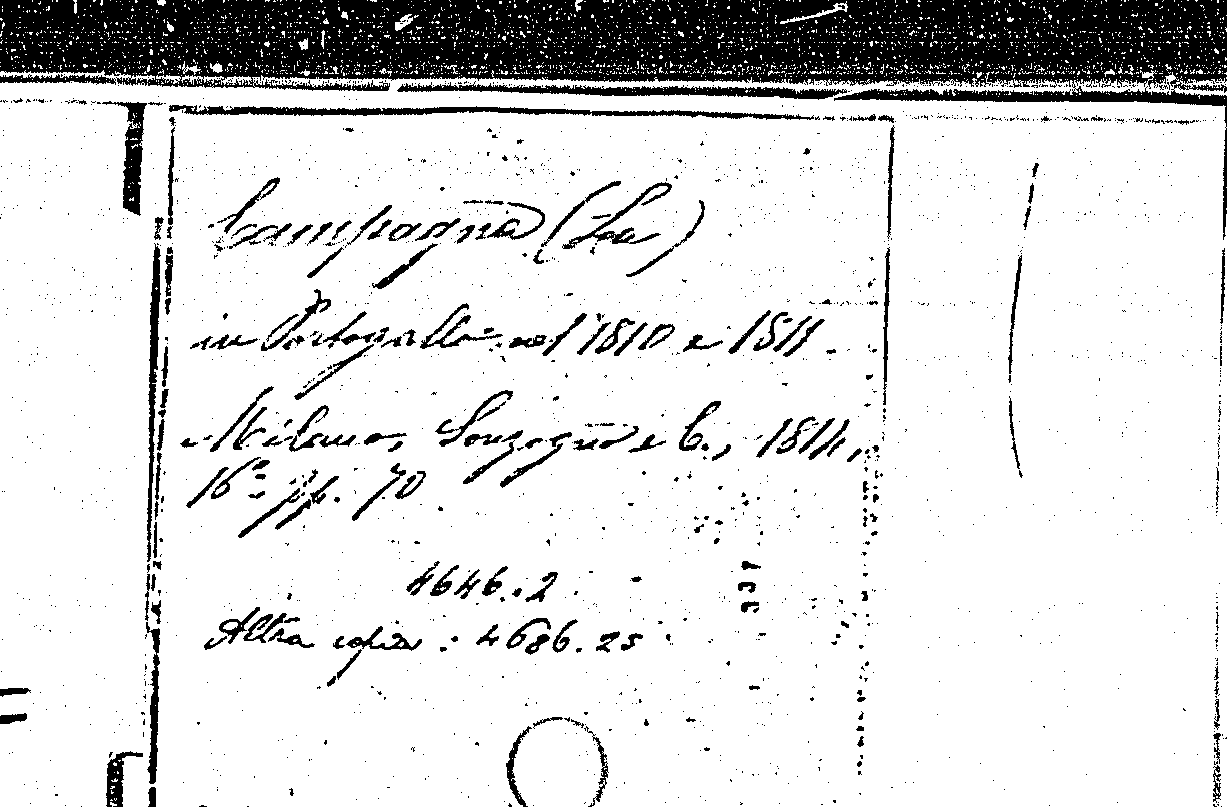 Campagna (La)
in Portogallo nel 1810 e 1811.
Milano, Sonzogno e C., 1814,
16°- pp. 70
4646..2
Altra copia : 4686.25
337